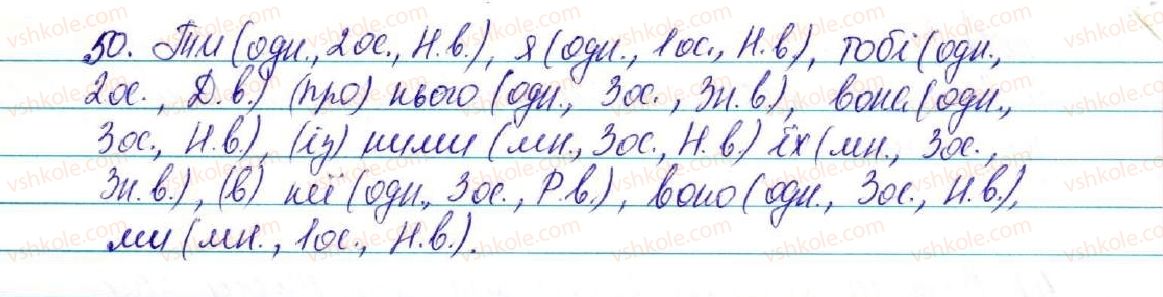 50. Ти (одн., 2ос., Н.в.), я (одн., 1ос., Н.в), тобі (одн.,
2ос., Д.в.) (про) нього (одн., 3ос., Зн.в.), вона (одн.,
3ос., Н.в.), (із) ними (мн., 3ос., Н.в.) їх (мн., 3ос.,
Зн.в.), (в) неї (одн., 3ос., Р.в.), воно (одн., 3ос., Н.в.),
ми (мн., 1ос., Н.в.).
vshkole.com